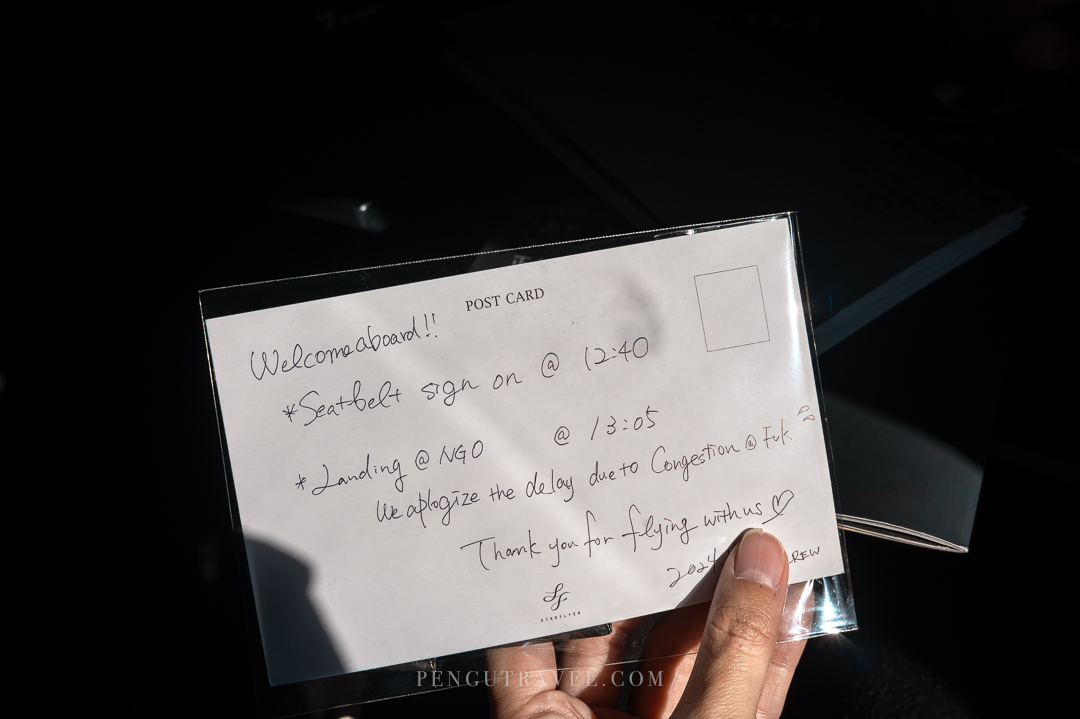 POST CARD
Welcome aboard!!
*Seatbelt sign on @ 12:40
*Landing @ NGO @ 13:05
We aplogize the delay due to Congestion @ Fuk
Thank you for flying with us ♡
2024
REW
STARFLYER
PENGUTRAVEE.COM